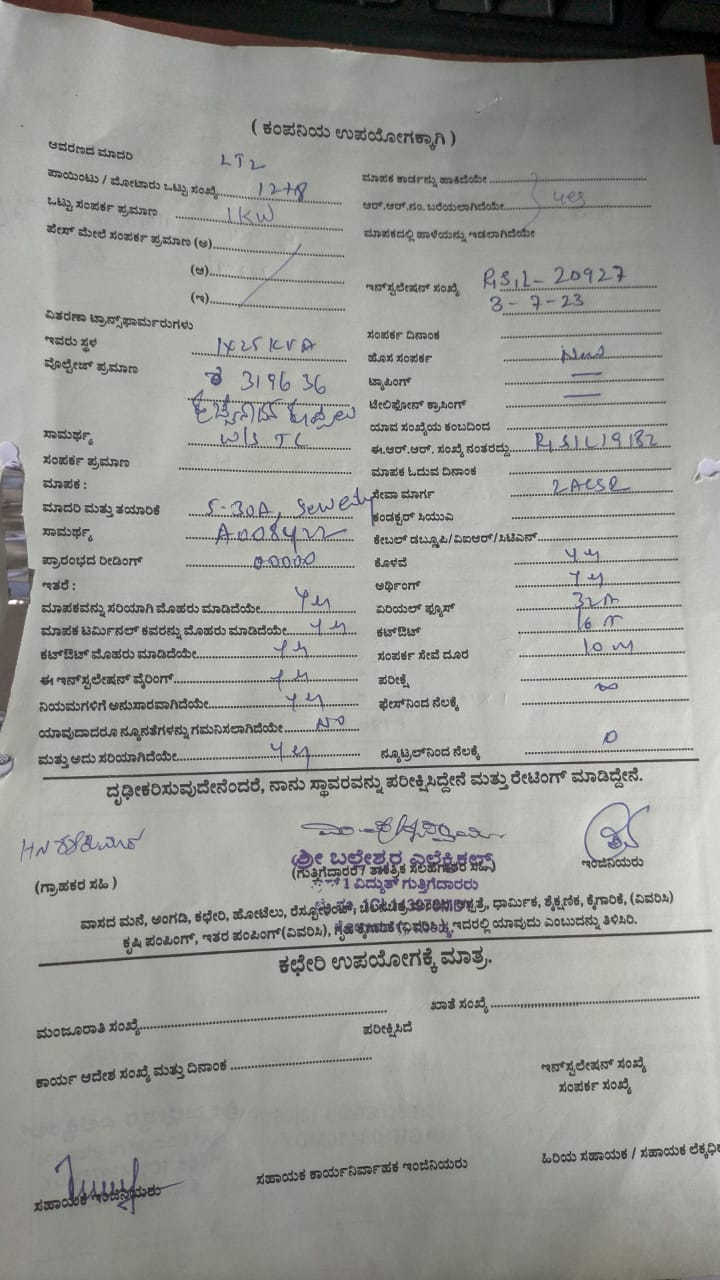 ( ಕಂಪನಿಯ ಉಪಯೋಗಕ್ಕಾಗಿ )
ಆವರಣದ ಮಾದರಿ LT2
ಪಾಯಿಂಟು / ಮೋಟಾರು ಒಟ್ಟು ಸಂಖ್ಯೆ 12+8
ಒಟ್ಟು ಸಂಪರ್ಕ ಪ್ರಮಾಣ 1KW
ಪೇಸ್ ಮೇಲೆ ಸಂಪರ್ಕ ಪ್ರಮಾಣ (ಅ)
(ಆ)
(ಇ)
ವಿತರಣಾ ಟ್ರಾನ್ಸ್‌ಫಾರ್ಮರುಗಳು
ಇವರು ಸ್ಥಳ 1X25 KVA
ವೊಲ್ಟೇಜ್ ಪ್ರಮಾಣ 319636
ಸಾಮರ್ಥ್ಯ W/S TC
ಸಂಪರ್ಕ ಪ್ರಮಾಣ
ಮಾಪಕ :
ಮಾದರಿ ಮತ್ತು ತಯಾರಿಕೆ 5-30A,
ಸಾಮರ್ಥ್ಯ A008422
ಪ್ರಾರಂಭದ ರೀಡಿಂಗ್ 00000
ಇತರೆ :
ಮಾಪಕವನ್ನು ಸರಿಯಾಗಿ ಮೊಹರು ಮಾಡಿದೆಯೇ ys
ಮಾಪಕ ಟರ್ಮಿನಲ್ ಕವರನ್ನು ಮೊಹರು ಮಾಡಿದೆಯೇ ys
ಕಟ್‌ಔಟ್ ಮೊಹರು ಮಾಡಿದೆಯೇ ys
ಈ ಇನ್‌ಸ್ಟಲೇಷನ್ ವೈರಿಂಗ್ ys
ನಿಯಮಗಳಿಗೆ ಅನುಸಾರವಾಗಿದೆಯೇ ys
ಯಾವುದಾದರೂ ನ್ಯೂನತೆಗಳನ್ನು ಗಮನಿಸಲಾಗಿದೆಯೇ No
ಮತ್ತು ಅದು ಸರಿಯಾಗಿದೆಯೇ ys
ಮಾಪಕ ಕಾರ್ಡನ್ನು ಹಾಕಿದೆಯೇ
ಆರ್.ಆರ್.ನಂ. ಬರೆಯಲಾಗಿದೆಯೇ yes
ಮಾಪಕದಲ್ಲಿ ಹಾಳೆಯನ್ನು ಇಡಲಾಗಿದೆಯೇ
ಇನ್‌ಸ್ಟಲೇಷನ್ ಸಂಖ್ಯೆ RSIL-20927
3-7-23
ಸಂಪರ್ಕ ದಿನಾಂಕ
ಹೊಸ ಸಂಪರ್ಕ New
ಟ್ಯಾಪಿಂಗ್ —
ಟೆಲಿಫೋನ್ ಕ್ರಾಸಿಂಗ್ —
ಯಾವ ಸಂಖ್ಯೆಯ ಕಂಬದಿಂದ
ಈ.ಆರ್.ಆರ್. ಸಂಖ್ಯೆ ನಂತರದ್ದು RSIL19182
ಮಾಪಕ ಓದುವ ದಿನಾಂಕ
ಸೇವಾ ಮಾರ್ಗ 2ACSR
ಕಂಡಕ್ಟರ್ ಸಿಯುವಿ
ಕೇಬಲ್ ಡಬ್ಲ್ಯೂಪಿ/ವಿಐಆರ್/ಸಿಟಿಎನ್
ಕೊಳವೆ ys
ಅರ್ಥಿಂಗ್ ys
ಏರಿಯಲ್ ಫ್ಯೂಸ್ 32A
ಕಟ್‌ಔಟ್ 16 A
ಸಂಪರ್ಕ ಸೇವೆ ದೂರ 10 m
ಪರೀಕ್ಷೆ
ಫೇಸ್‌ನಿಂದ ನೆಲಕ್ಕೆ ∞
ನ್ಯೂಟ್ರಲ್‌ನಿಂದ ನೆಲಕ್ಕೆ 0
ದೃಢೀಕರಿಸುವುದೇನೆಂದರೆ, ನಾನು ಸ್ಥಾವರವನ್ನು ಪರೀಕ್ಷಿಸಿದ್ದೇನೆ ಮತ್ತು ರೇಟಿಂಗ್ ಮಾಡಿದ್ದೇನೆ.
(ಗ್ರಾಹಕರ ಸಹಿ )
ಶ್ರೀ ಬಲ್ಲೇಶ್ವರ ಎಲೆಕ್ಟ್ರಿಕಲ್ಸ್
(ಗುತ್ತಿಗೆದಾರರ / ತಾಂತ್ರಿಕ ಸಲಹಗಾರರ ಸಹಿ)
1 ವಿದ್ಯುತ್ ಗುತ್ತಿಗೆದಾರರು
ಇಂಜಿನಿಯರು
ವಾಸದ ಮನೆ, ಅಂಗಡಿ, ಕಛೇರಿ, ಹೋಟೆಲು, ಧಾರ್ಮಿಕ, ಶೈಕ್ಷಣಿಕ, ಕೈಗಾರಿಕೆ, (ವಿವರಿಸಿ)
ಕೃಷಿ ಪಂಪಿಂಗ್, ಇತರ ಪಂಪಿಂಗ್(ವಿವರಿಸಿ), ಇದರಲ್ಲಿ ಯಾವುದು ಎಂಬುದನ್ನು ತಿಳಿಸಿರಿ.
ಕಛೇರಿ ಉಪಯೋಗಕ್ಕೆ ಮಾತ್ರ.
ಮಂಜೂರಾತಿ ಸಂಖ್ಯೆ
ಖಾತೆ ಸಂಖ್ಯೆ
ಪರೀಕ್ಷಿಸಿದೆ
ಕಾರ್ಯ ಆದೇಶ ಸಂಖ್ಯೆ ಮತ್ತು ದಿನಾಂಕ
ಇನ್‌ಸ್ಟಲೇಷನ್ ಸಂಖ್ಯೆ
ಸಂಪರ್ಕ ಸಂಖ್ಯೆ
ಸಹಾಯಕ ಇಂಜಿನಿಯರು
ಸಹಾಯಕ ಕಾರ್ಯನಿರ್ವಾಹಕ ಇಂಜಿನಿಯರು
ಹಿರಿಯ ಸಹಾಯಕ / ಸಹಾಯಕ